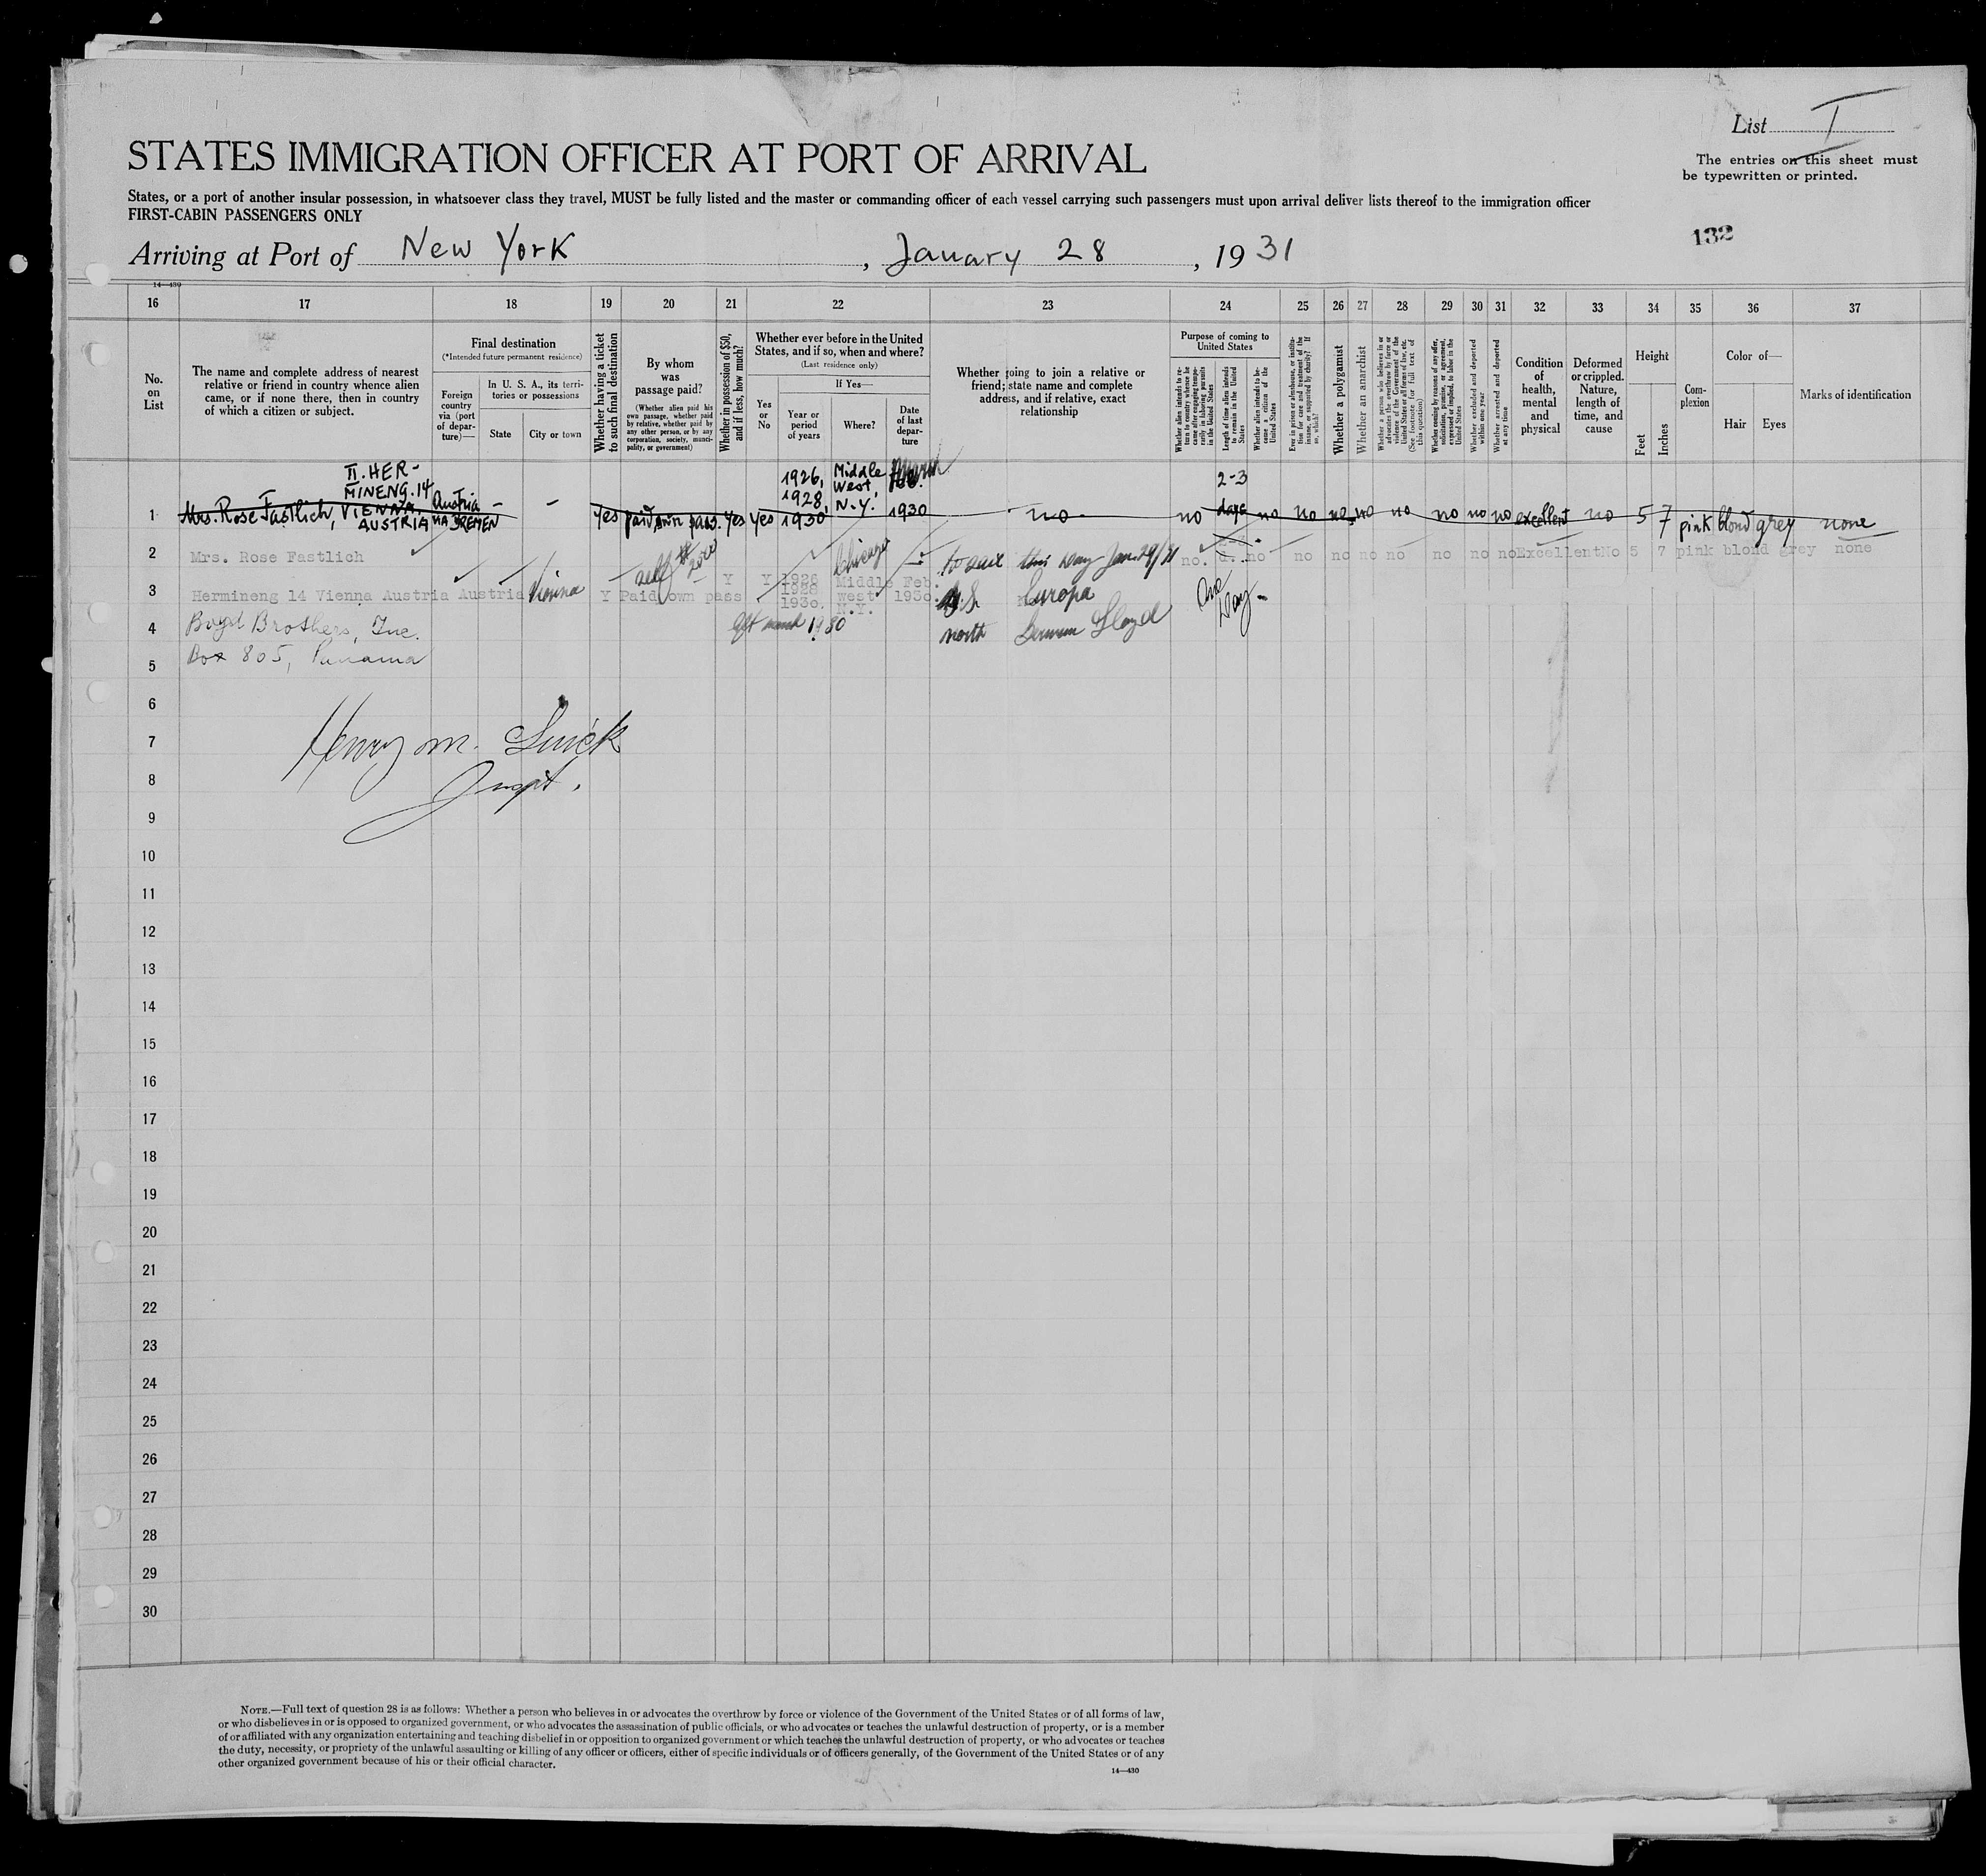 List I
STATES IMMIGRATION OFFICER AT PORT OF ARRIVAL
The entries on this sheet must
be typewritten or printed.
States, or a port of another insular possession, in whatsoever class they travel, MUST be fully listed and the master or commanding officer of each vessel carrying such passengers must upon arrival deliver lists thereof to the immigration officer
FIRST-CABIN PASSENGERS ONLY
132
Arriving at Port of New York, January 28, 1931
14—430
16 17 18 19 20 21 22 23 24 25 26 27 28 29 30 31 32 33 34 35 36 37
No.
on
List
The name and complete address of nearest
relative or friend in country whence alien
came, or if none there, then in country
of which a citizen or subject.
Final destination
(*Intended future permanent residence)
Foreign
country
via (port
of depar-
ture)—
In U. S. A., its terri-
tories or possessions
State
City or town
Whether having a ticket
to such final destination
By whom
was
passage paid?
(Whether alien paid his
own passage, whether paid
by relative, whether paid by
any other person, or by any
corporation, society, munici-
pality, or government)
Whether in possession of $50,
and if less, how much?
Whether ever before in the United
States, and if so, when and where?
(Last residence only)
Yes
or
No
If Yes—
Year or
period
of years
Where?
Date
of last
depar-
ture
Whether going to join a relative or
friend; state name and complete
address, and if relative, exact
relationship
Purpose of coming to
United States
Whether alien intends to re-
turn to country whence he
came after engaging tempo-
rarily in laboring pursuits
in the United States
Length of time alien intends
to remain in the United
States
Whether alien intends to be-
come a citizen of the
United States
Ever in prison or almshouse, or institu-
tion for care and treatment of the
insane, or supported by charity? If
so, which?
Whether a polygamist
Whether an anarchist
Whether a person who believes in or
advocates the overthrow by force or
violence of the Government of the
United States or all forms of law, etc.
(See footnote for full text of
this question)
Whether coming by reasons of any offer,
solicitation, promise, or agreement,
expressed or implied, to labor in the
United States
Whether excluded and deported
within one year
Whether arrested and deported
at any time
Condition
of
health,
mental
and
physical
Deformed
or crippled.
Nature,
length of
time, and
cause
Height
Feet
Inches
Com-
plexion
Color of—
Hair
Eyes
Marks of identification
II. HER-
MINENG. 14
1 Mrs. Rose Fastlich, VIENNA, AUSTRIA Austria VIA BREMEN - - yes paid own pass. yes yes 1926, 1928, 1930 Middle West, N.Y. 1930 no no 2-3 days no no no no no no no no excellent no 5 7 pink blond grey none
2 Mrs. Rose Fastlich self Chicago this day Jan. 29/31 no. no no no no no no no no Excellent No 5 7 pink blond grey none
3 Hermineng 14 Vienna Austria Austria Vienna Y Paid own pass Y Y 1926 1928 1930. Middle West N.Y. Feb. 1930. Europa One Day.
4 Boyd Brothers, Inc. 1930 North German Lloyd
5 Box 805, Panama
6
7 Henry M.
8 Inspt.
9
10
11
12
13
14
15
16
17
18
19
20
21
22
23
24
25
26
27
28
29
30
NOTE.—Full text of question 28 is as follows: Whether a person who believes in or advocates the overthrow by force or violence of the Government of the United States or of all forms of law,
or who disbelieves in or is opposed to organized government, or who advocates the assassination of public officials, or who advocates or teaches the unlawful destruction of property, or is a member
of or affiliated with any organization entertaining and teaching disbelief in or opposition to organized government or which teaches the unlawful destruction of property, or who advocates or teaches
the duty, necessity, or propriety of the unlawful assaulting or killing of any officer or officers, either of specific individuals or of officers generally, of the Government of the United States or of any
other organized government because of his or their official character.
14—430